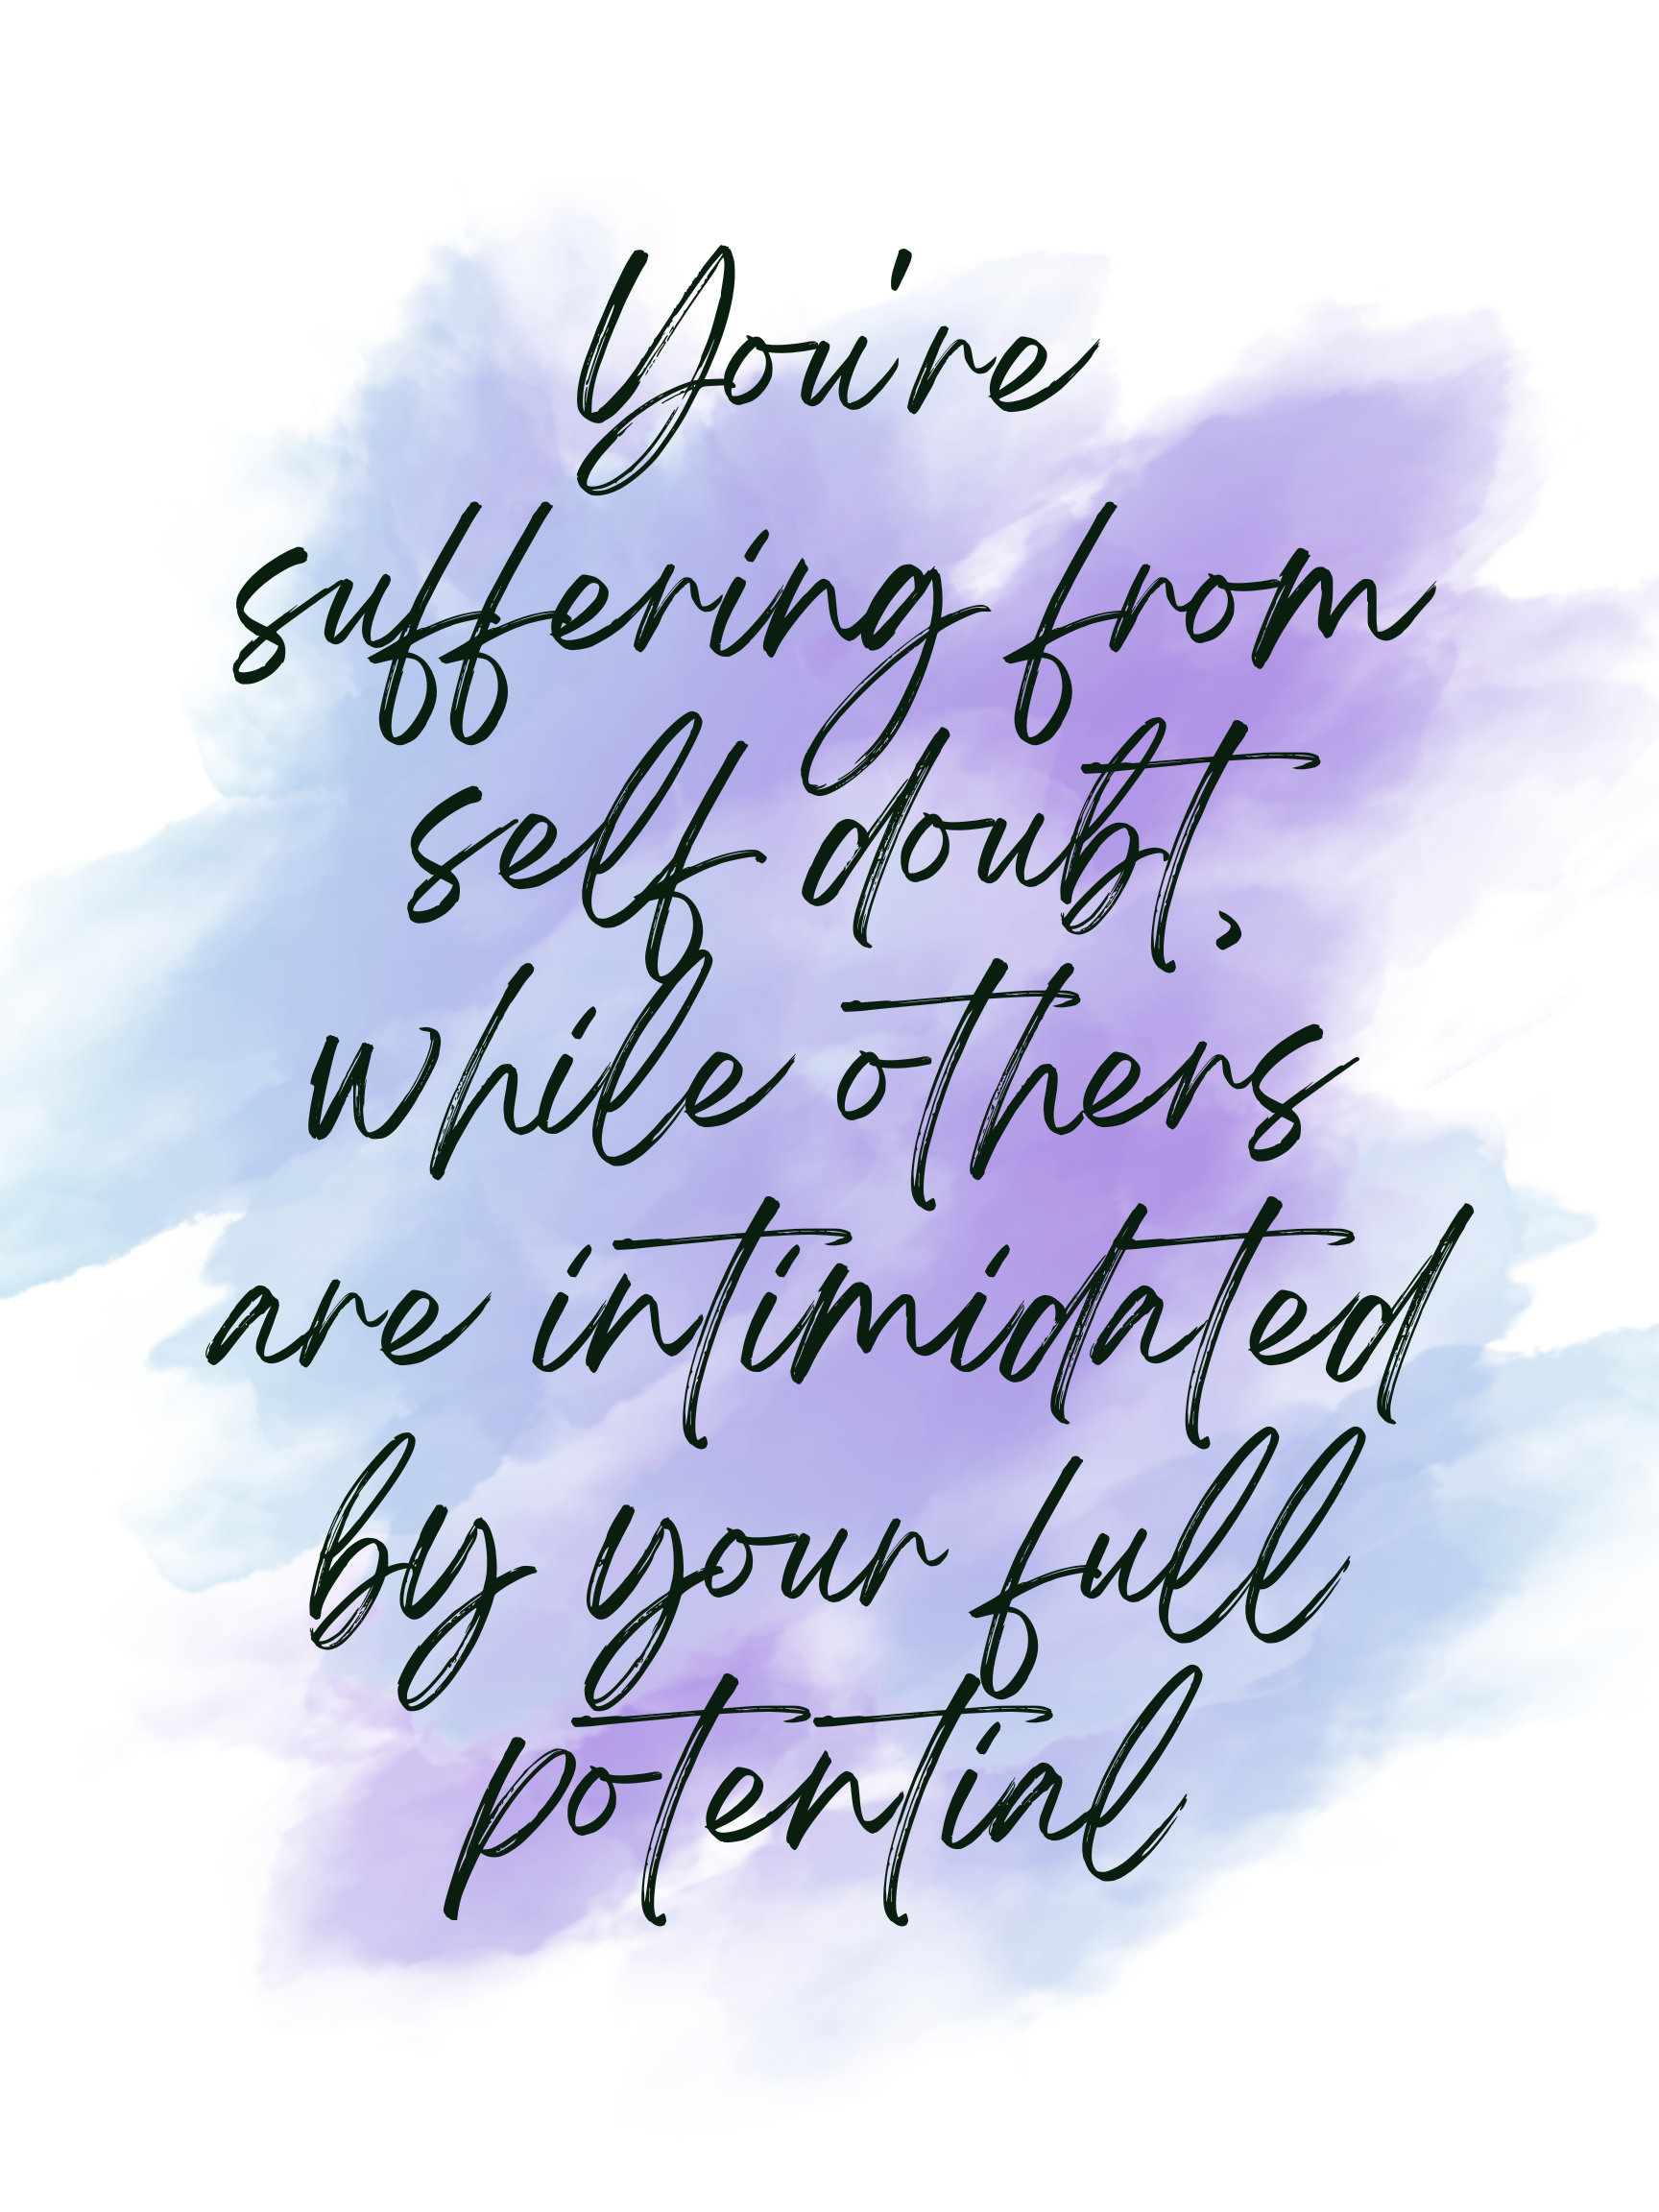 You're
suffering from
self doubt,
while others
are intimidated
by your full
potential